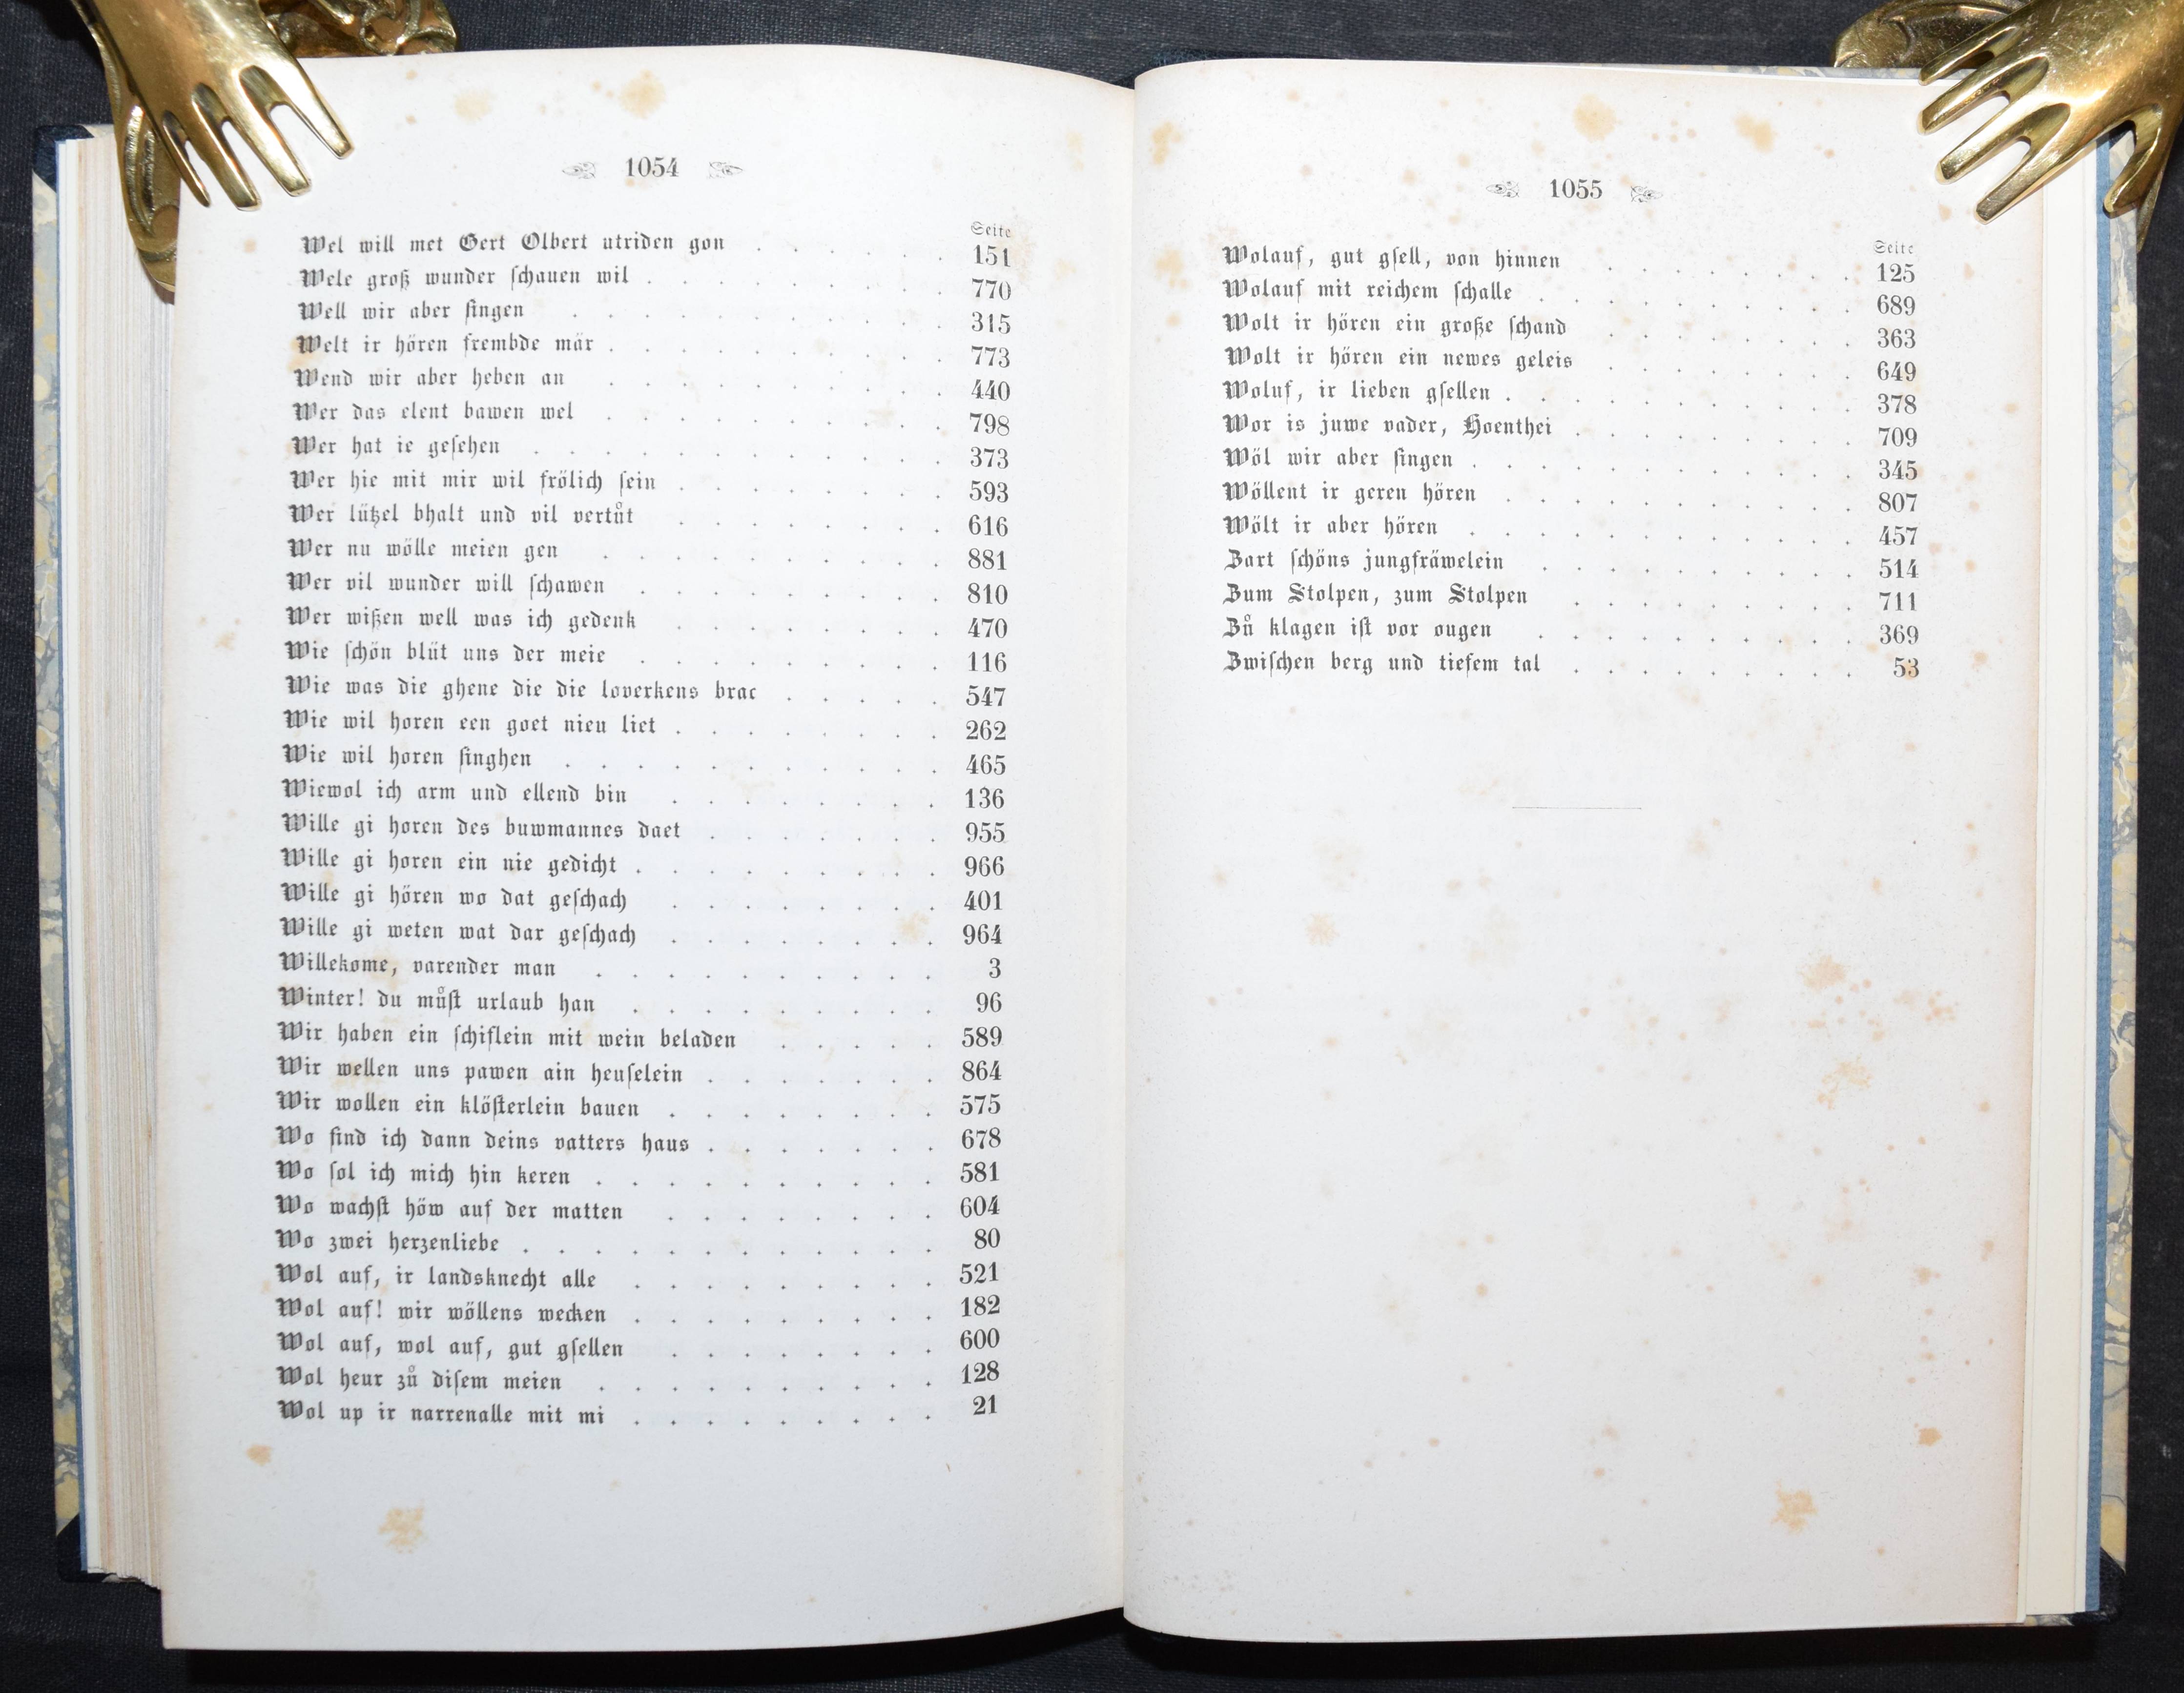 1054
Seite
Wel will met Gert Olbert utriden gon . . . . . . 151
Wele groß wunder ſchauen wil . . . . . . . . . 770
Well wir aber ſingen . . . . . . . . . . . 315
Welt ir hören frembde mär . . . . . . . . . . 773
Wend wir aber heben an . . . . . . . . . . 440
Wer das elent bawen wel . . . . . . . . . . 798
Wer hat ie geſehen . . . . . . . . . . . . 373
Wer hie mit mir wil frölich ſein . . . . . . . . 593
Wer lützel bhalt und vil vertůt . . . . . . . . 616
Wer nu wölle meien gen . . . . . . . . . . 881
Wer vil wunder will ſchawen . . . . . . . . . 810
Wer wißen well was ich gedenk . . . . . . . . 470
Wie ſchön blüt uns der meie . . . . . . . . . 116
Wie was die ghene die die loverkens brac . . . . . 547
Wie wil horen een goet nieu liet . . . . . . . . 262
Wie wil horen ſinghen . . . . . . . . . . . 465
Wiewol ich arm und ellend bin . . . . . . . . 136
Wille gi horen des buwmannes daet . . . . . . . 955
Wille gi horen ein nie gedicht . . . . . . . . . 966
Wille gi hören wo dat geſchach . . . . . . . . 401
Wille gi weten wat dar geſchach . . . . . . . . 964
Willekome, varender man . . . . . . . . . . 3
Winter! du můſt urlaub han . . . . . . . . . 96
Wir haben ein ſchiflein mit wein beladen . . . . . 589
Wir wellen uns pawen ain heuſelein . . . . . . . 864
Wir wollen ein klöſterlein bauen . . . . . . . . 575
Wo find ich dann deins vatters haus . . . . . . . 678
Wo ſol ich mich hin keren . . . . . . . . . . 581
Wo wachſt höw auf der matten . . . . . . . . 604
Wo zwei herzenliebe . . . . . . . . . . . . 80
Wol auf, ir landsknecht alle . . . . . . . . . 521
Wol auf! wir wöllens wecken . . . . . . . . . 182
Wol auf, wol auf, gut gſellen . . . . . . . . 600
Wol heur zů diſem meien . . . . . . . . . . 128
Wol up ir narrenalle mit mi . . . . . . . . . 21
1055
Seite
Wolauf, gut gſell, von hinnen . . . . . . . . 125
Wolauf mit reichem ſchalle . . . . . . . . . . 689
Wolt ir hören ein große ſchand . . . . . . . . 363
Wolt ir hören ein newes geleis . . . . . . . . 649
Woluf, ir lieben gſellen . . . . . . . . . . . 378
Wor is juwe vader, Hoenthei . . . . . . . . . 709
Wöl wir aber ſingen . . . . . . . . . . . . 345
Wöllent ir geren hören . . . . . . . . . . . 807
Wölt ir aber hören . . . . . . . . . . . . 457
Zart ſchöns jungfräwelein . . . . . . . . . . 514
Zum Stolpen, zum Stolpen . . . . . . . . . 711
Zů klagen iſt vor ougen . . . . . . . . . . 369
Zwiſchen berg und tiefem tal . . . . . . . . . 53